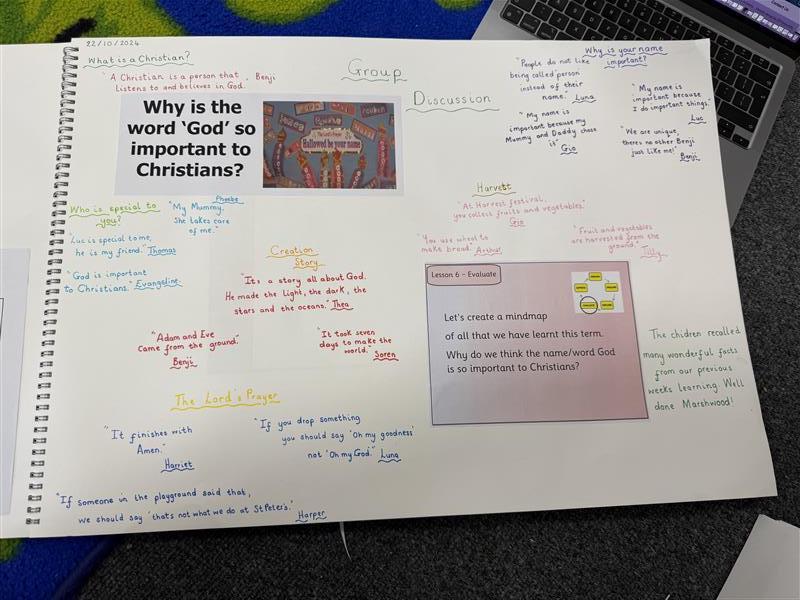 22/10/2024
What is a Christian?
"A Christian is a person that
listens to and believes in God.
Benji
Why is the
word 'God' so
important to
Christians?
Hallowed be your name
Group
Discussion
Why is your name
important?
"People do not like
being called person
instead of their
name." Luna
"My name is
important because my
Mummy and Daddy chose
it" Gio
"My name is
important because
I do important things."
Luc
"We are unique,
theres no other Benji
just like me!"
Benji
Who is special to
you?
Phoebe
"My Mummy.
She takes care
of me."
"Luc is special to me,
he is my friend." Thomas
"God is important
to Christians." Evangeline
Creation
Story
"Its a story all about God.
He made the light, the dark, the
stars and the oceans." Thea
"Adam and Eve
came from the ground."
Benji
"It took seven
days to make the
world." Soren
Harvest
"At Harvest festival,
you collect fruits and vegetables."
Gio
"You use wheat to
make bread." Arthur
"Fruit and vegetables
are harvested from the
ground." Tilly
Lesson 6 - Evaluate
Let's create a mindmap
of all that we have learnt this term.
Why do we think the name/word God
is so important to Christians?
The chidren recalled
many wonderful facts
from our previous
weeks learning. Well
done Marshwood!
The Lord's Prayer
"It finishes with
Amen."
Harriet
"If you drop something
you should say 'Oh my goodness'
not 'Oh my God." Luna
"If someone in the playground said that,
we should say 'that's not what we do at St Peter's."
Harper